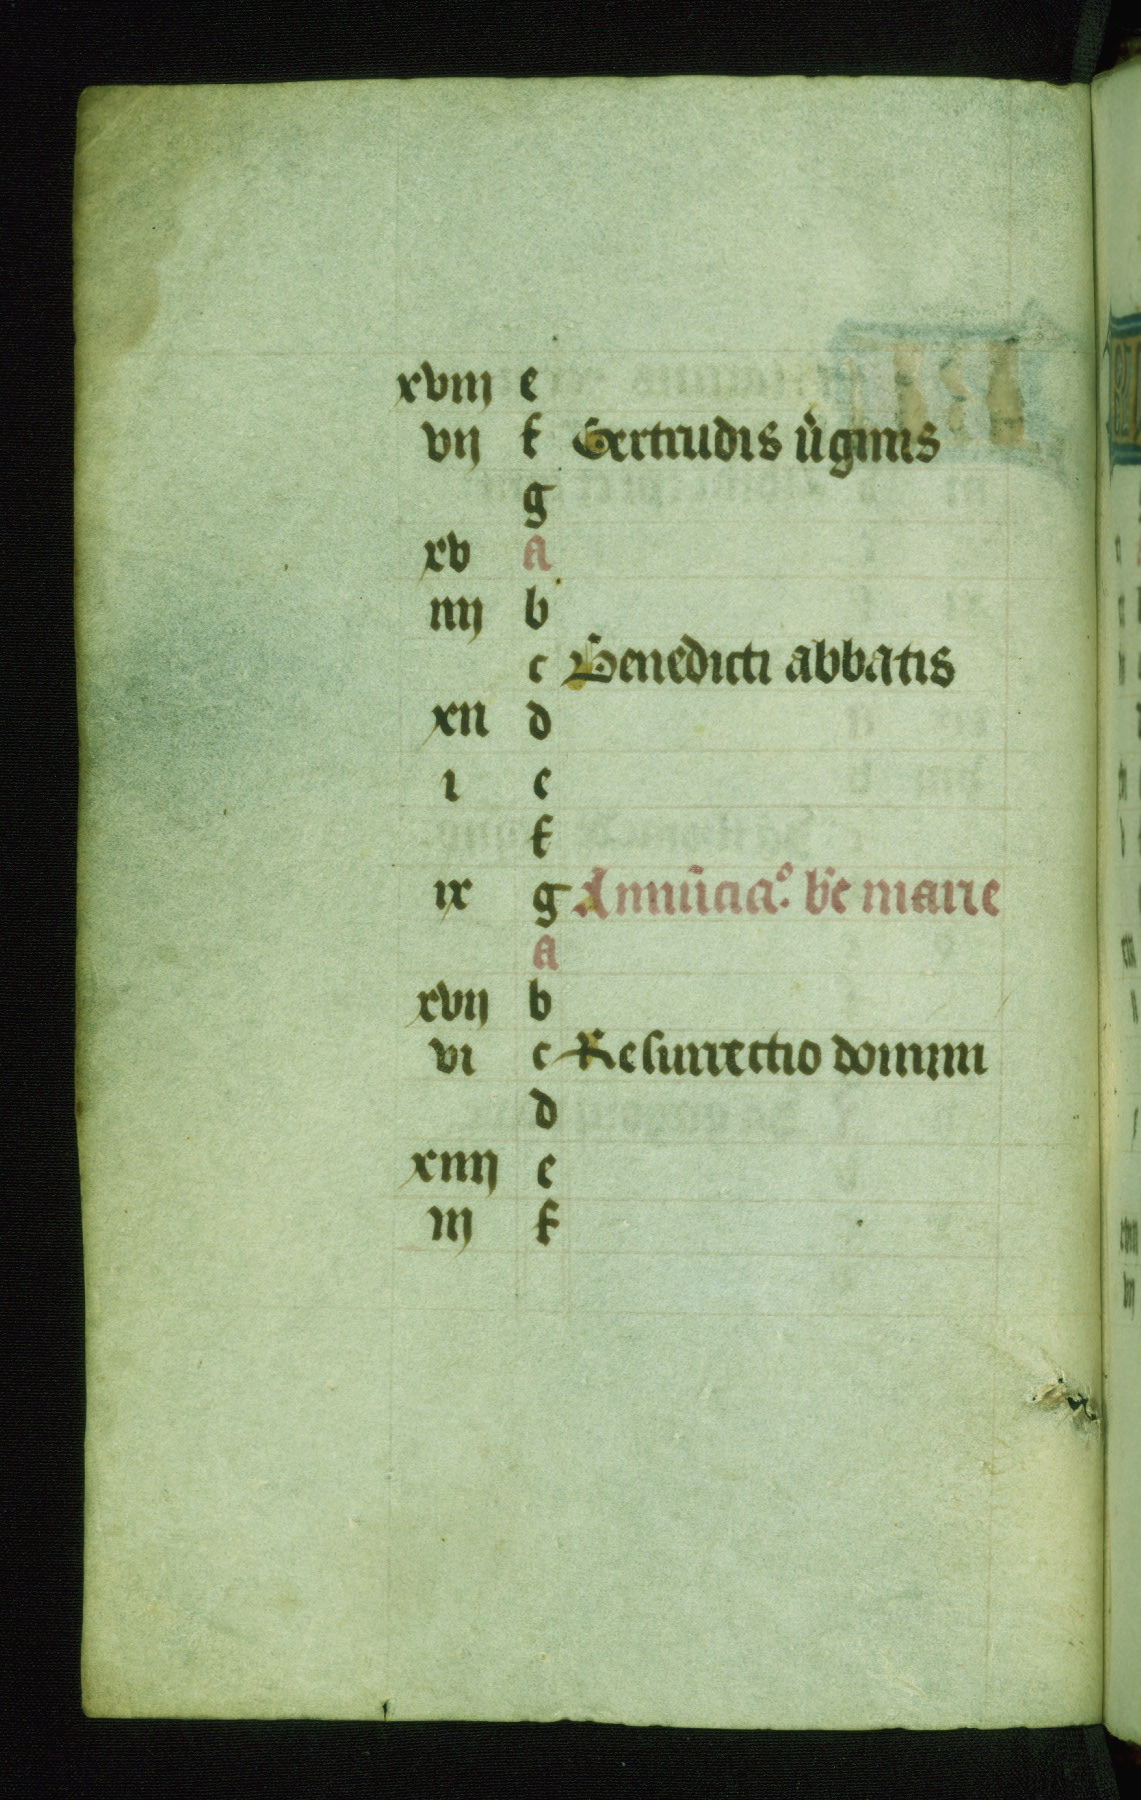 xviij e
vij f Gertrudis ũginis
g
xv a
iiij b
c Benedicti abbatis
xii d
i e
f
ix g Annũcia.º bẽ marie
a
xvij b
vi c Resurrectio domini
d
xiiij e
iij f